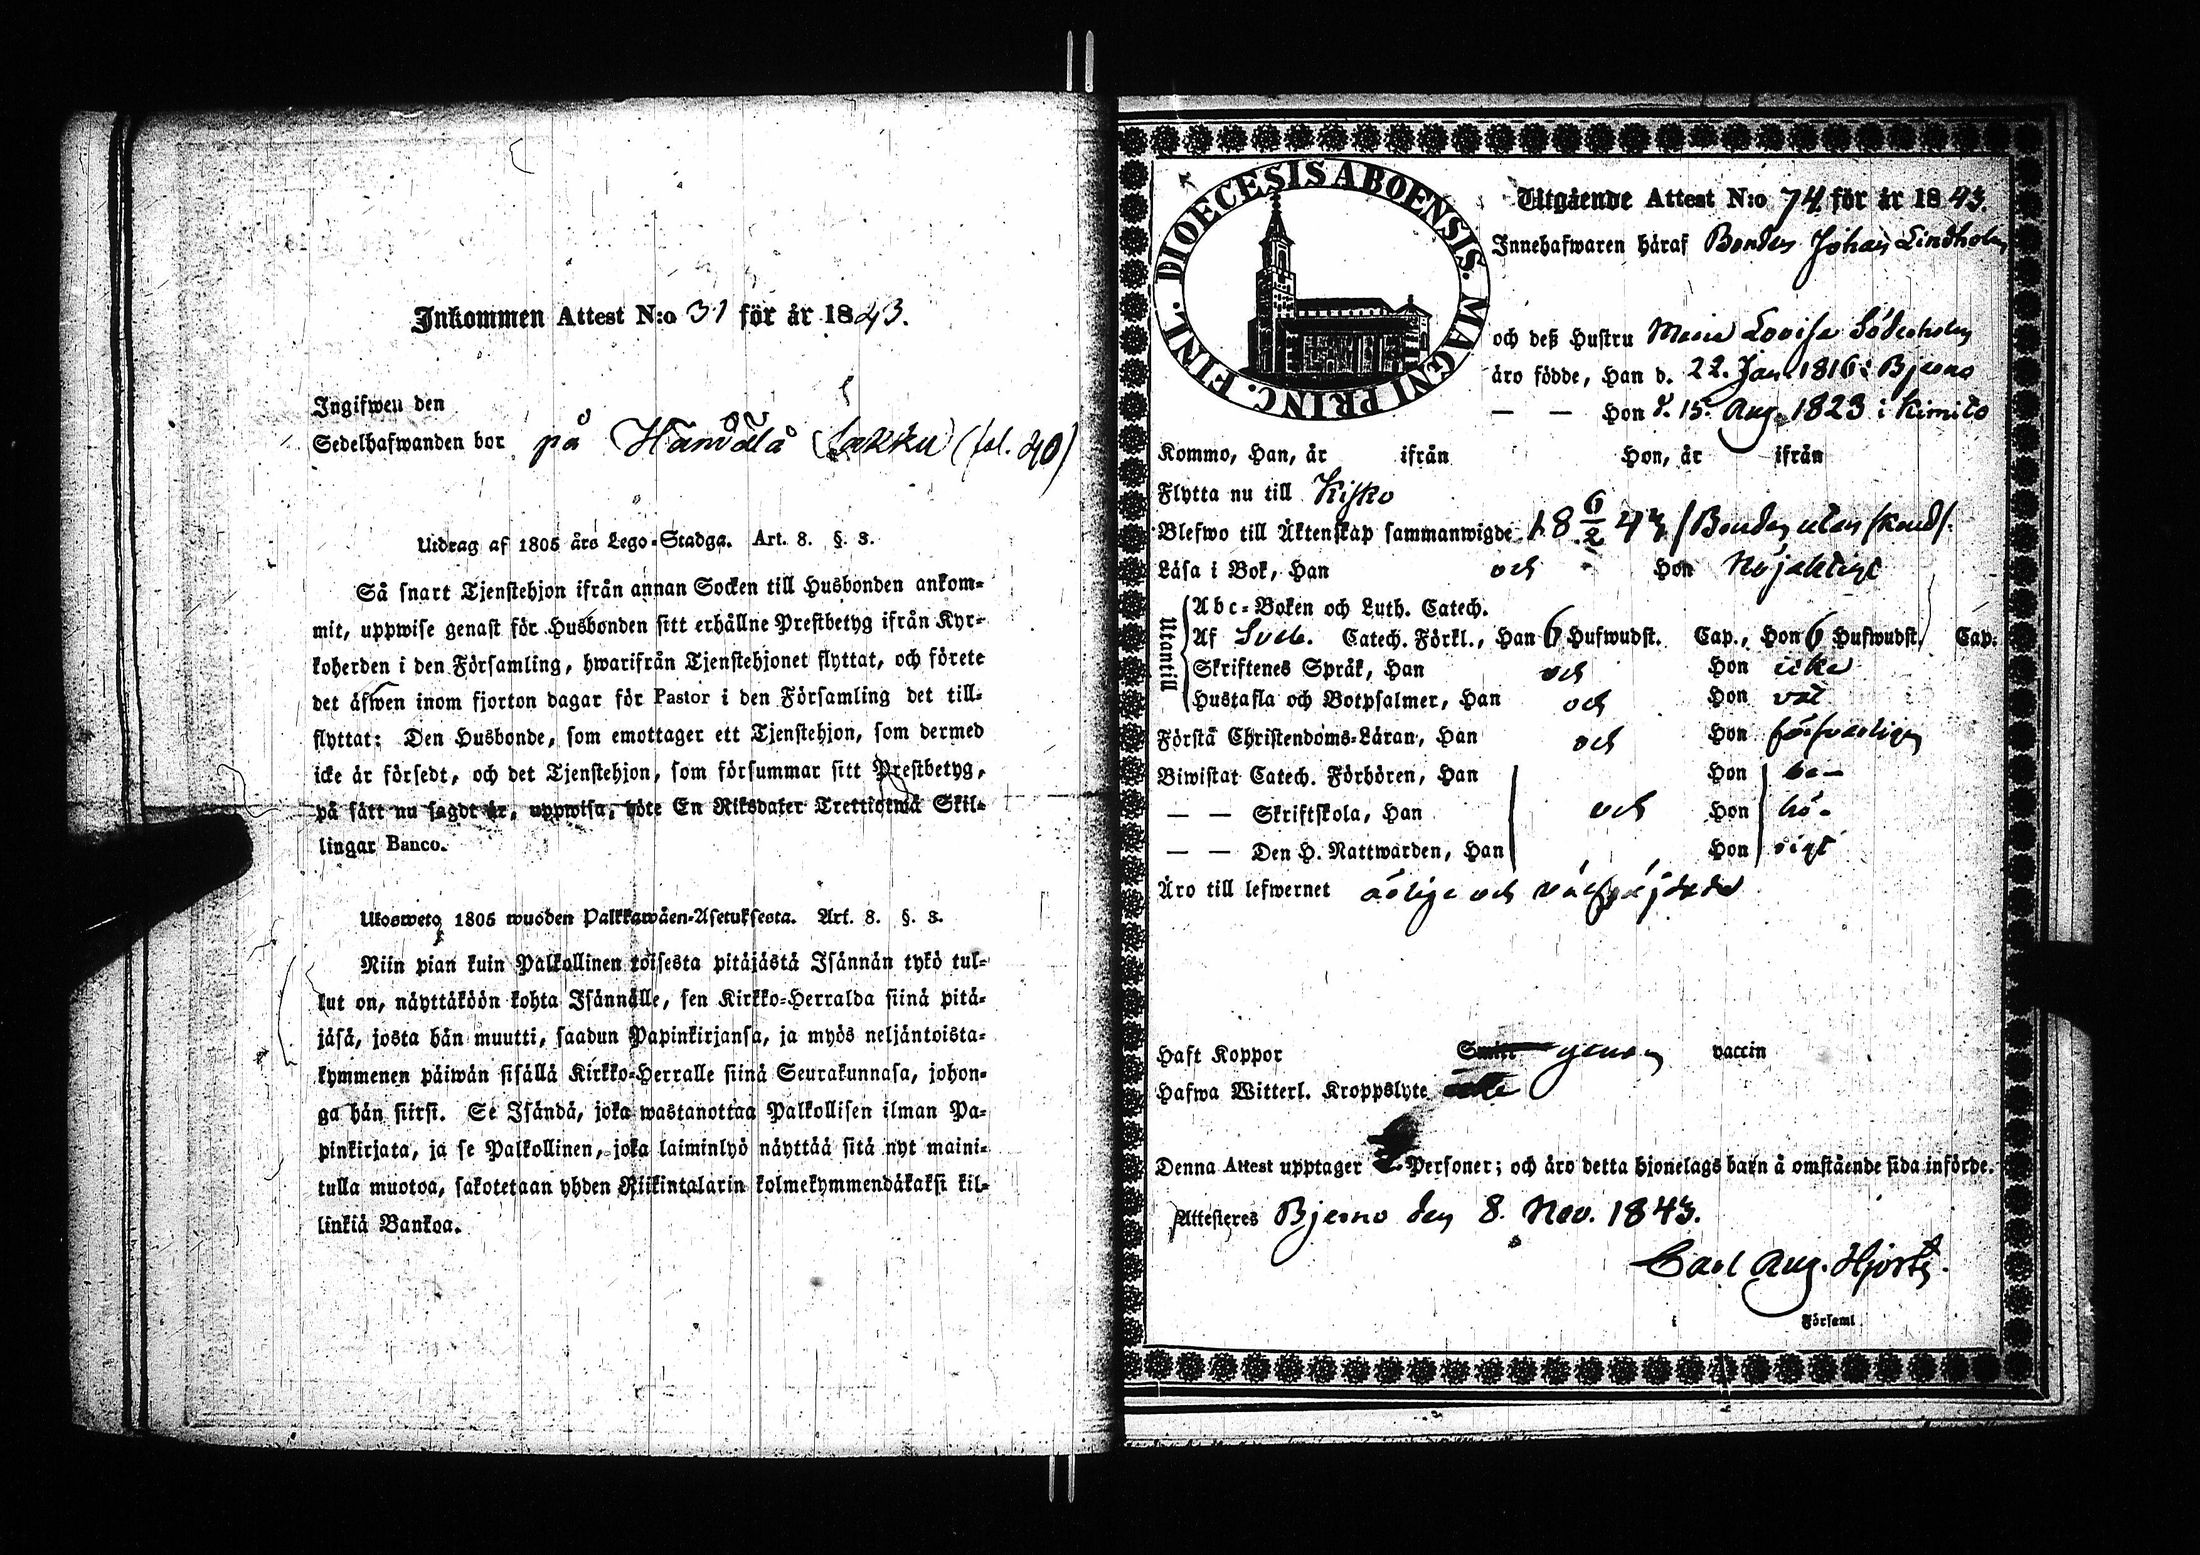 Inkommen Attest N:o 31 för år 1843.
Ingifwen den
Sedelhafwanden bor på Hamdälä Sakku (fol. 40)
Utdrag af 1805 års Lego-Stadga. Art. 8. §. 3.
Så snart Tjenstehjon ifrån annan Socken till Husbonden ankom-
mit, uppwise genast för Husbonden sitt erhållne Prestbetyg ifrån Kyr-
koherden i den Församling, hwarifrån Tjenstehjonet flyttat, och förete
det äfwen inom fjorton dagar för Pastor i den Församling det till-
flyttat: Den Husbonde, som emottager ett Tjenstehjon, som dermed
icke är försedt, och det Tjenstehjon, som försummar sitt Prestbetyg,
på sätt nu sagdt är, uppwisa, böte En Riksdaler Trettiotwå Skil-
lingar Banco.
Ulosweto 1805 wuoden Palkkawäen-Asetuksesta. Art. 8. §. 3.
Niin pian kuin Palkollinen toisesta pitäjästä Isännän tykö tul-
lut on, näyttäköön kohta Isännälle, sen Kirkko-Herralda siinä pitä-
jäsä, josta hän muutti, saadun Papinkirjansa, ja myös neljäntoista-
kymmenen päiwän sisällä Kirkko-Herralle siinä Seurakunnasa, johon-
ga hän siirsi. Se Isändä, joka wastanottaa Palkollisen ilman Pa-
pinkirjata, ja se Palkollinen, joka laiminlyö näyttää sitä nyt maini-
tulla muotoa, sakotetaan yhden Riikintalarin kolmekymmendäkaksi kil-
linkiä Bankoa.
DIOECESIS ABOENSIS. MAGNI PRINC. FINL.
Utgående Attest N:o 74 för år 1843.
Innehafwaren häraf Bonden Johan Lindholm
och deß Hustru Maria Lovisa Söderholm
äro födde, Han d. 22. Jan. 1816 i Bjerno
— — Hon d. 15. Aug. 1823 i Kimito
Kommo, Han, år ifrån Hon, år ifrån
Flytta nu till Kisko
Blefwo till Äktenskap sammanwigde 18 6/2 43 /Bonden utan skand/.
Läsa i Bok, Han och Hon Nöjaktigt
Utantill
Abc-Boken och Luth. Catech.
Af Sveb. Catech. Förkl., Han 6 Hufwudst. Cap., Hon 6 Hufwudst. Cap.
Skriftenes Språk, Han och Hon icke
Hustafla och Botpsalmer, Han och Hon väl
Förstå Christendoms-Läran, Han och Hon försvarligen
Biwistat Catech. Förhören, Han Hon be-
— — Skriftskola, Han och Hon hö-
— — Den H. Nattwarden, Han Hon rigt
Äro till lefwernet ärlige och välfräjdade
Haft Koppor genom vaccin
Hafwa Witterl. Kroppslyte
Denna Attest upptager 2 Personer; och äro detta hjonelags barn å omstående sida införde.
Attesteres Bjerno den 8. Nov. 1843.
Carl Aug. Hjorth.
i Församl.